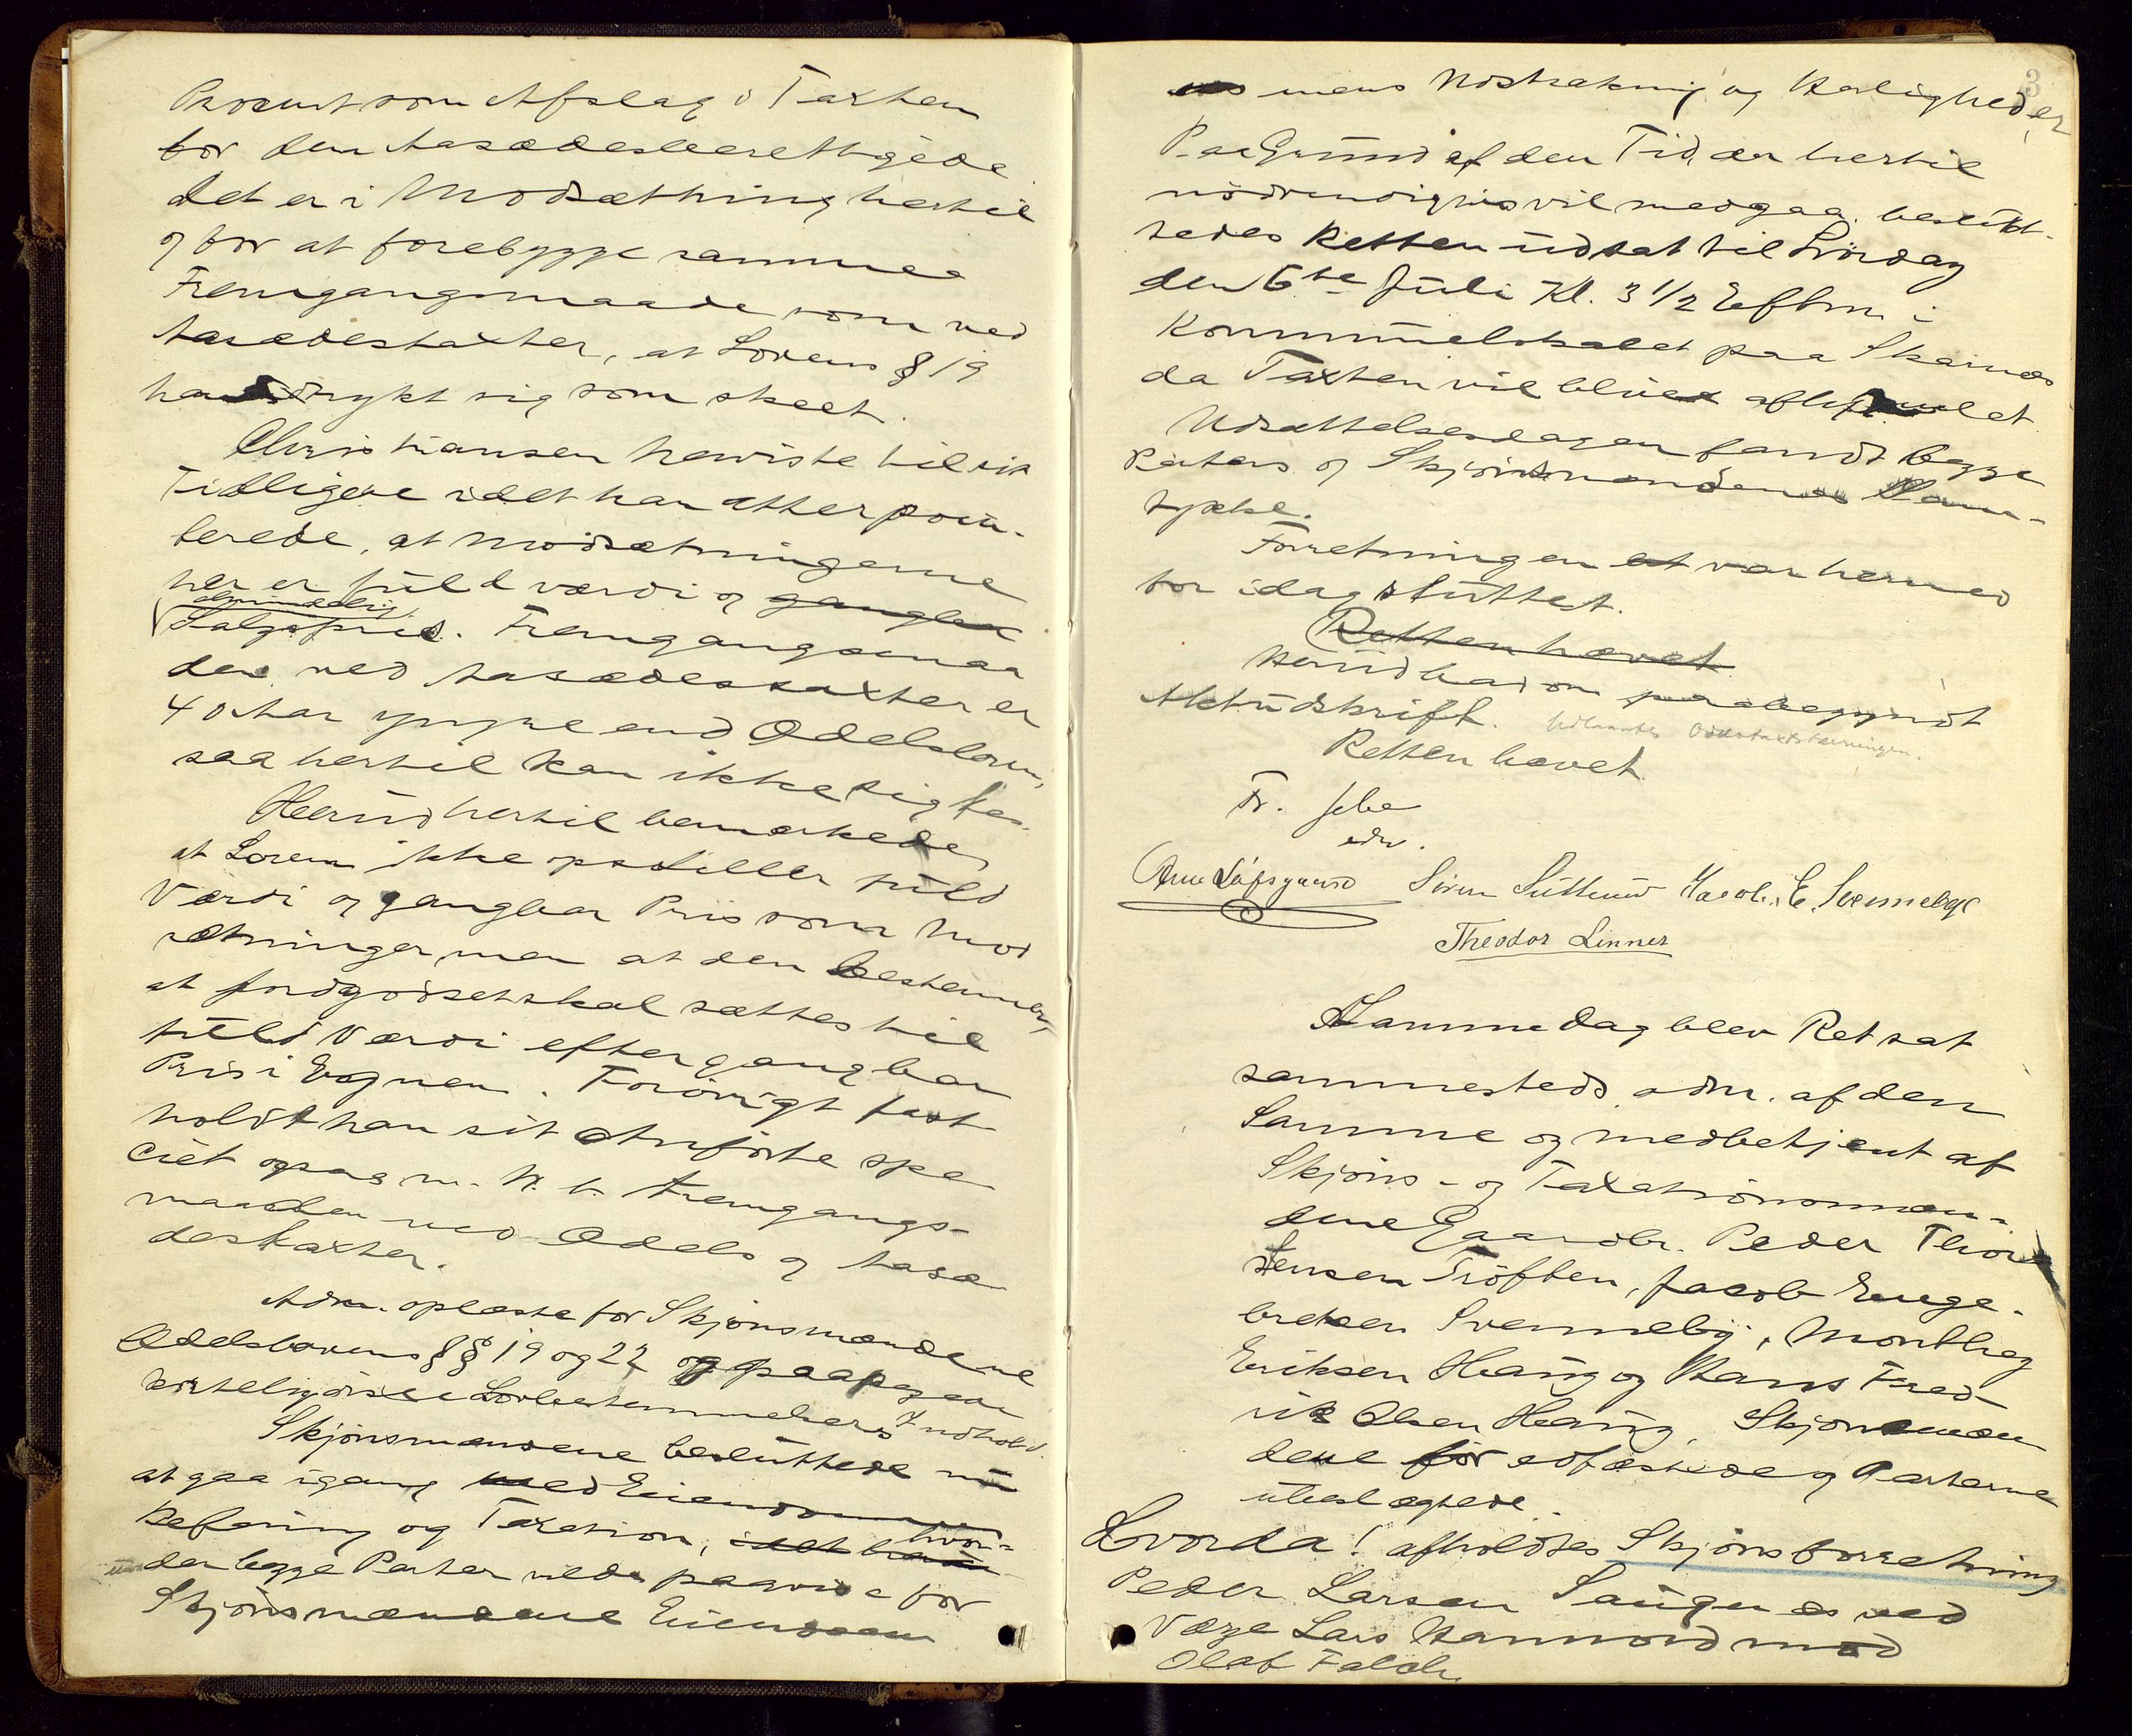 Procent som Afslag i Taxten
for den Aasædesberettigede
det er i Modsætning hertil
og for at forebygge samme
Fremgangsmaade som ved
Aasædestaxter, at Lovens § 19
har udtrykt sig som skeet.
Christiansen henviste til sit
Tidligere idet han atter poin-
terede, at Modsætningerne
her er fuld værdi og gangbar
almindelig
Salgspris. Fremgangsmaa
den ved Aasædestaxter er
40 Aar yngre end Odelsloven,
saa hertil kan ikke sigtes.
Heerud hertil bemærkede,
at Loven ikke opstiller fuld
Værdi og gangbar Pris som Mod
sætninger, men at den bestemmer,
at Jordgodset skal sættes til
fuld Værdi efter gangbar
Pris i Egnen. Forøvrigt fast
holdt han sit Anførte spe
cielt ogsaa m. H. t. Fremgangs-
maaden ved Odels og Aasæ
destaxter.
Adm. oplæste for Skjønsmændene
Odelslovens §§ 19 og 22 og paapegede
Lovbestemmelsers Indhold.
Skjønsmændene besluttede nu
at gaa igang med Eiendommens
Befaring og Taxation, hvor-
under begge Parter vilde paavise for
Skjønsmændene Eiendom
mens Udstrækning og Herligheder
Paa Grund af den Tid, der hertil
nødvendigvis vil medgaa, beslut-
tedes Retten udsat til Lördag
den 6te Juli Kl. 3 1/2 Efterm. i
Kommunelokalet paa Skarnes
da Taxten vil blive afhjemlet
Udsættelsesdagen fandt begge
Parters og Skjønsmændenes Sam-
tykke.
Forretningen var hermed
for idag sluttet.
Retten hævet
Heerud bad om paabegyndt
Aktudskrift.
Retten hævet.
Fr.
edv.
Arne Löfsgaard Søren Sütterud Jacob. E. Svenneby
Theodor Linner
Samme Dag blev Ret sat
sammesteds adm. af den
Samme og medbetjent af
Skjøns- og Taxationsmæn-
dene Gaardbr. Peder Thor
stensen Tröften, Jacob Enge-
bretsen Svenneby, Monthey
Eriksen Haug og Hans Fred-
rik Olsen Haug. Skjønsmæn
dene er edfæstede og Parterne
ubeslægtede.
Hvorda! afholdtes Skjønsforretning
Peder Larsen Saugnæs ved
Værge Lars Hammond mod
Olaf Falch